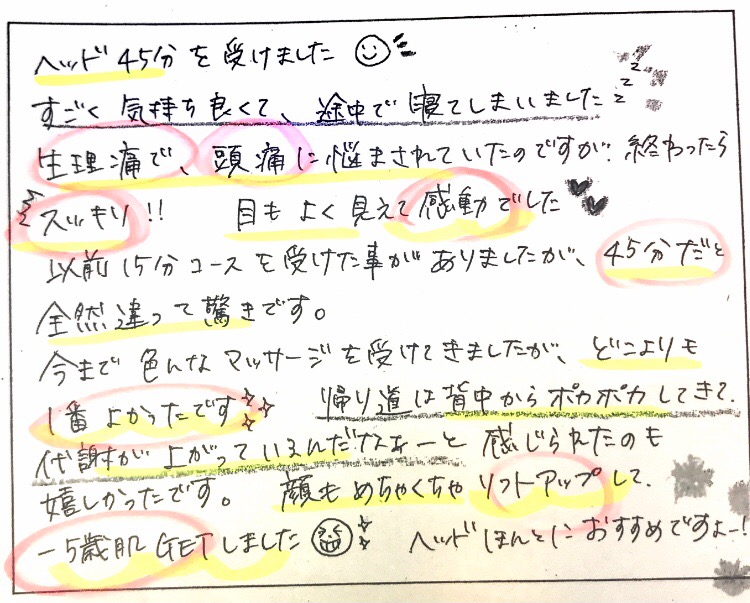 ヘッド45分を受けました
すごく気持ち良くて、途中で寝てしまいました zzz
生理痛で、頭痛に悩まされていたのですが、終わったら
スッキリ!! 目もよく見えて感動でした
以前15分コースを受けた事がありましたが、45分だと
全然違って驚きです。
今まで色んなマッサージを受けてきましたが、どこよりも
1番よかったです 帰り道は背中からポカポカしてきて、
代謝が上がっているんだなぁーと感じられたのも
嬉しかったです。 顔もめちゃくちゃリフトアップして、
-5歳肌GETしました ヘッドほんとにおすすめですよー!